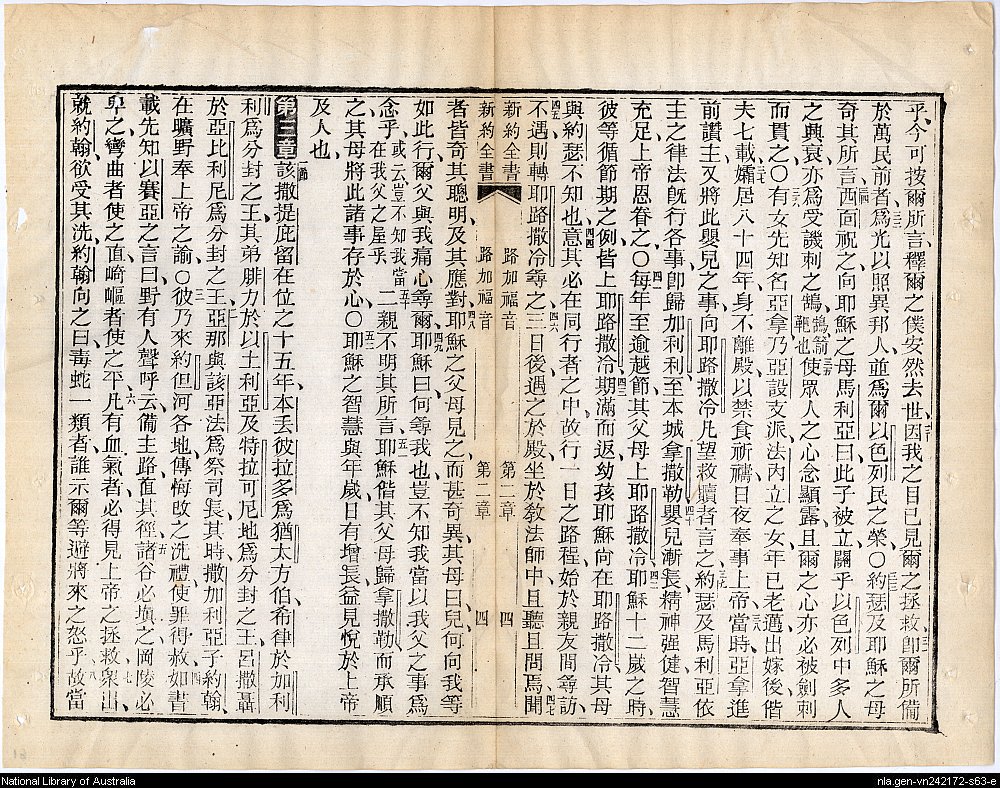 乎、今可按爾所言釋爾之僕安然去世、因我之目已見爾之拯救、卽爾所備
於萬民前者、爲光以照異邦人、並爲爾以色列民之榮〇約瑟及耶穌之母
奇其所言、西面祝之、向耶穌之母馬利亞曰、此子被立、關乎以色列中多人
之興衰、亦爲受譏刺之鵠、鵠箭靶也使眾人之心念顯露、且爾之心亦必被劍刺
而貫之〇有女先知名亞拿、乃亞設支派法內立之女、年已老邁、出嫁後偕
夫七載、孀居八十四年、身不離殿、以禁食祈禱、日夜奉事上帝、當時亞拿進
前讚主、又將此嬰兒之事、向耶路撒冷凡望救贖者言之、約瑟及馬利亞依
主之律法旣行各事、卽歸加利利、至本城拿撒勒、嬰兒漸長、精神强健、智慧
充足、上帝恩眷之〇每年至逾越節、其父母上耶路撒冷、耶穌十二歲之時、
彼等循節期之例、皆上耶路撒冷、期滿而返、幼孩耶穌向在耶路撒冷、其母
與約瑟不知也、意其必在同行者之中、故行一日之路程、始於親友間等訪、
不遇、則轉耶路撒冷尋之、三日後遇之於殿、坐於敎法師中、且聽且問焉、聞
新約全書 路加福音 第二章 四
新約全書 路加福音 第二章 四
者皆奇其聰明、及其應對、耶穌之父母見之而甚奇異、其母曰、兒何向我等
如此行、爾父與我痛心尋爾、耶穌曰、何尋我也、豈不知我當以我父之事爲
念乎、或云豈不知我當在我父之屋乎二親不明其所言、耶穌偕其父母歸拿撒勒、而承順
之、其母將此諸事存於心〇耶穌之智慧與年歲日有增長、益見悅於上帝
及人也、
第三章一節該撒提庇留在位之十五年、本丟彼拉多爲猶太方伯、希律於加利
利爲分封之王、其弟腓力於以土利亞及特拉可尼地爲分封之王、呂撒聶
於亞比利尼爲分封之王、亞那與該亞法爲祭司長、其時撒加利亞子約翰、
在曠野奉上帝之諭〇彼乃來約但河各地、傳悔改之洗禮、使罪得赦、如書
載先知以賽亞之言曰、野有人聲呼云、備主路、直其徑、諸谷必塡之、岡陵必
卑之、彎曲者使之直、崎嶇者使之平、凡有血氣者、必得見上帝之拯救、衆出
就約翰欲受其洗、約翰向之曰、毒蛇一類者、誰示爾等避將來之怒乎、故當
National Library of Australia
nla.gen-vn242172-s63-e